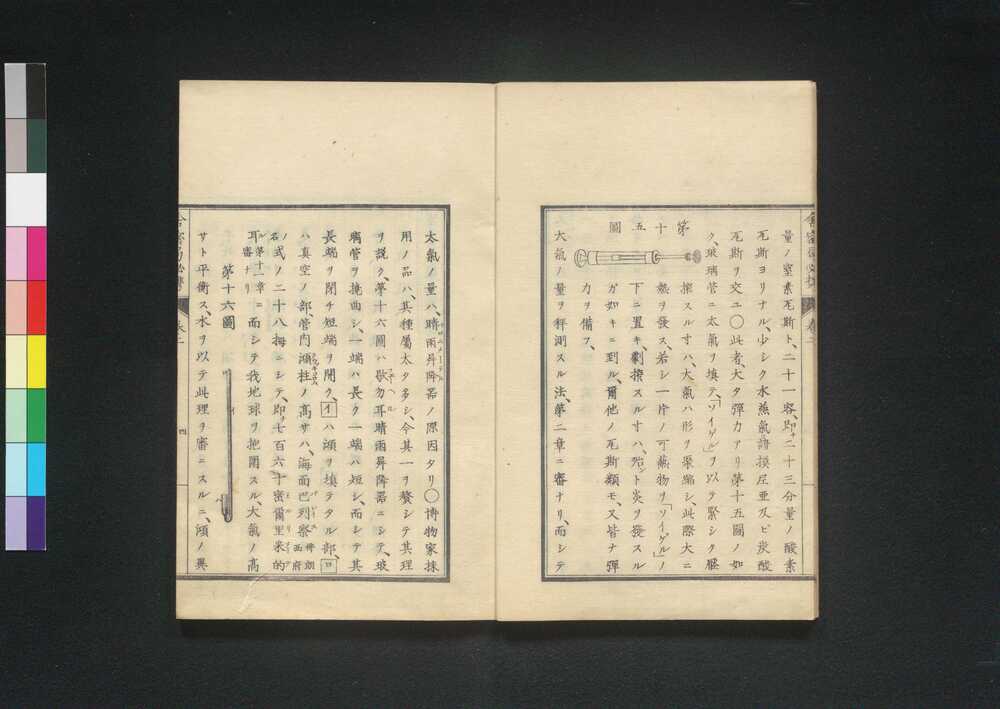 量ノ窒素瓦斯ト、二十一容、即チ二十三分量ノ酸素
瓦斯ヨリナル、少シク水蒸氣諳摸尼亜及ビ炭酸
瓦斯ヲ交ユ〇此者、大タ彈力アリ第十五圖ノ如
ク、玻璃管ニ太氣ヲ填テ、「ソイゲル」ヲ以テ緊シク壓
搾スル寸ハ、大氣ハ形ヲ聚縮シ、此際大ニ
熱ヲ發ス、若シ一片ノ可燕物ヲ「ソイゲル」ノ
下ニ置キ、劇搾スル寸ハ、殆ント炎ヲ發スル
ガ如キニ到ル、爾他ノ瓦斯類モ、又皆ナ彈
力ヲ備フ、
第十五圖
大氣ノ量ヲ秤測スル法、第二章ニ審ナリ、而シテ
太氣ノ量ハ、晴雨昇降器ノ原因タリ〇博物家採
用ノ品ハ、其種屬太タ多シ、今其一ヲ贅シテ其理
ヲ説ク、第十六圖ハ歇勿耳晴雨昇降器ニシテ、玻
璃管ヲ挽曲シ、一端ハ長ク一端ハ短シ、而シテ其
長端ヲ閉チ短端ヲ開ク、イハ澒ヲ填テタル部、ロ
ハ真空ノ部、管内澒柱ノ高サハ、海面巴列察佛朗西府
ノ名式ノ二十八拇ニシテ、即チ七百六十密爾里米的
耳第十一章ニ審ナリ而シテ我地球ヲ把圍スル、大氣ノ高
第十六圖
イ
サト平衡ス、水ヲ以テ此理ヲ審ニスルニ、澒ノ異
四